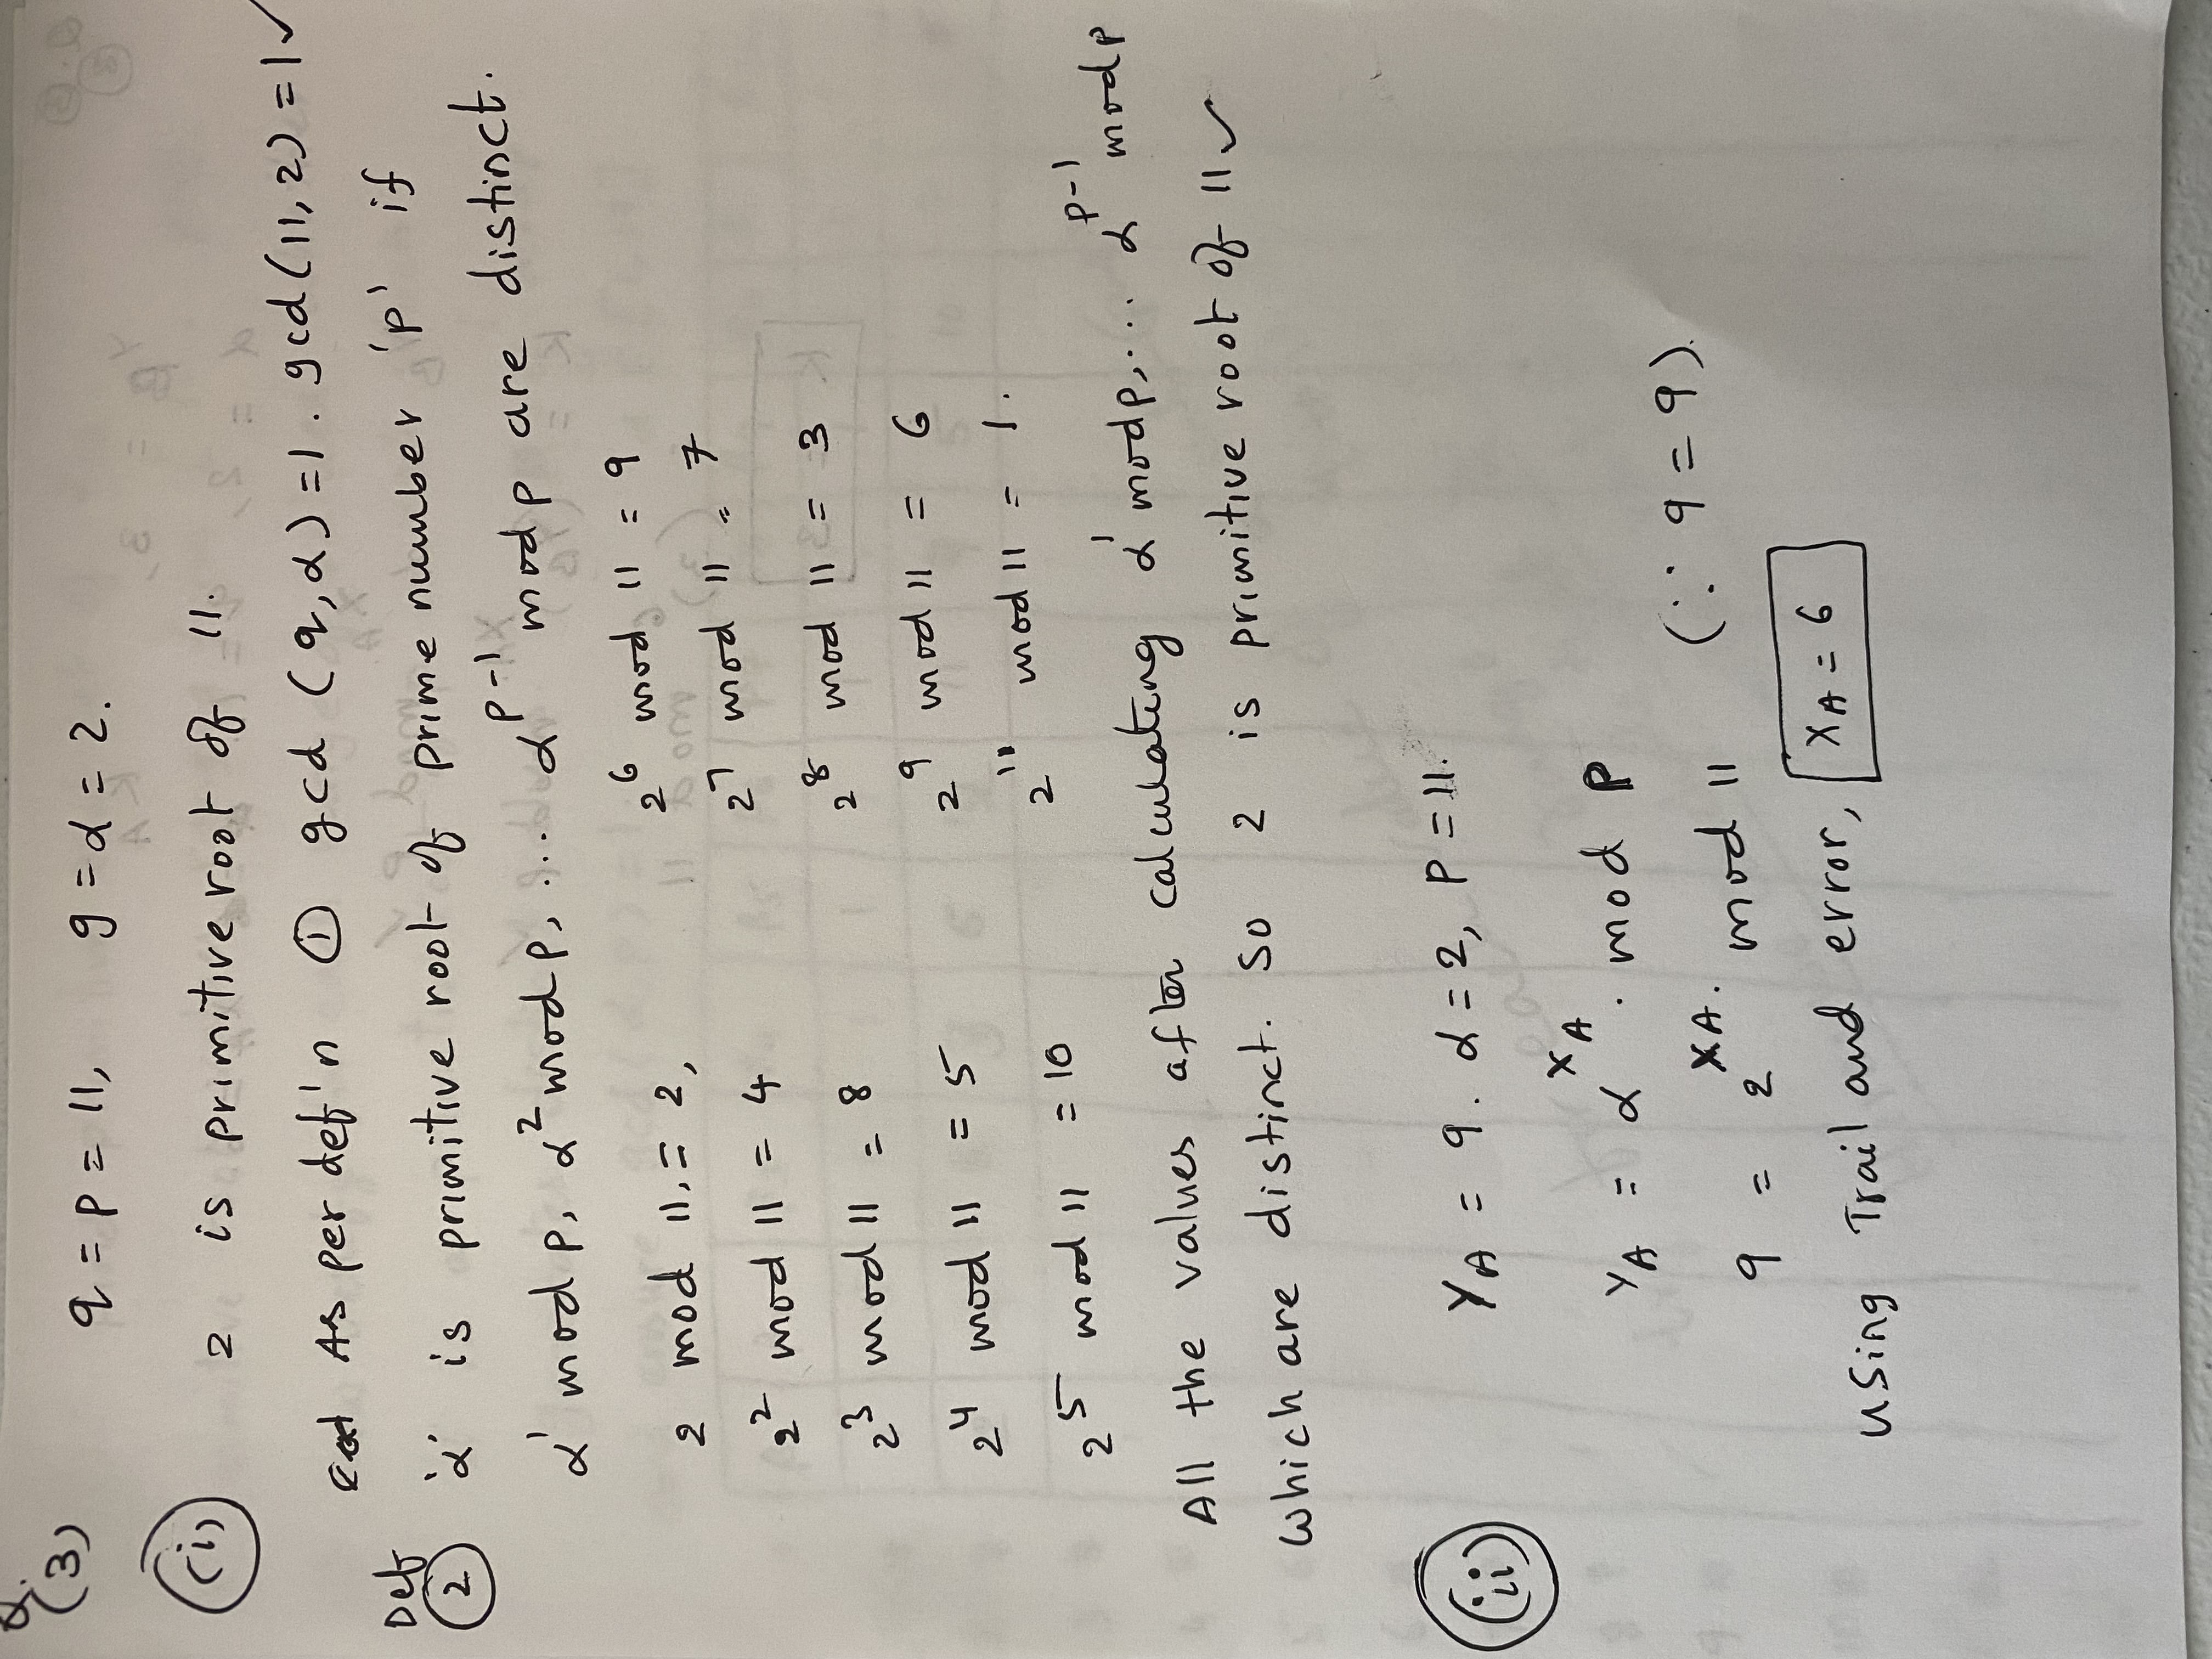 Q.
(3)
q = p = 11, g = α = 2.
(i) 2 is primitive root of 11.
As per def'n ① gcd (q, α) = 1. gcd (11, 2) = 1 ✓
Def
② 'α' is primitive root of prime number 'p' if
α¹ mod p, α² mod p, ... α^(p-1) mod p are distinct.
2 mod 11, = 2,
2² mod 11 = 4
2³ mod 11 = 8
2⁴ mod 11 = 5
2⁵ mod 11 = 10
2⁶ mod 11 = 9
2⁷ mod 11 = 7
2⁸ mod 11 = 3
2⁹ mod 11 = 6
2¹⁰ mod 11 = 1.
All the values after calculating α¹ mod p, ... α^(p-1) mod p
which are distinct. So 2 is primitive root of 11 ✓
(ii) Y_A = 9. α = 2, P = 11.
Y_A = α^(X_A) . mod P
9 = 2^(X_A). mod 11 (∵ 9 = 9).
Using Trail and error, X_A = 6